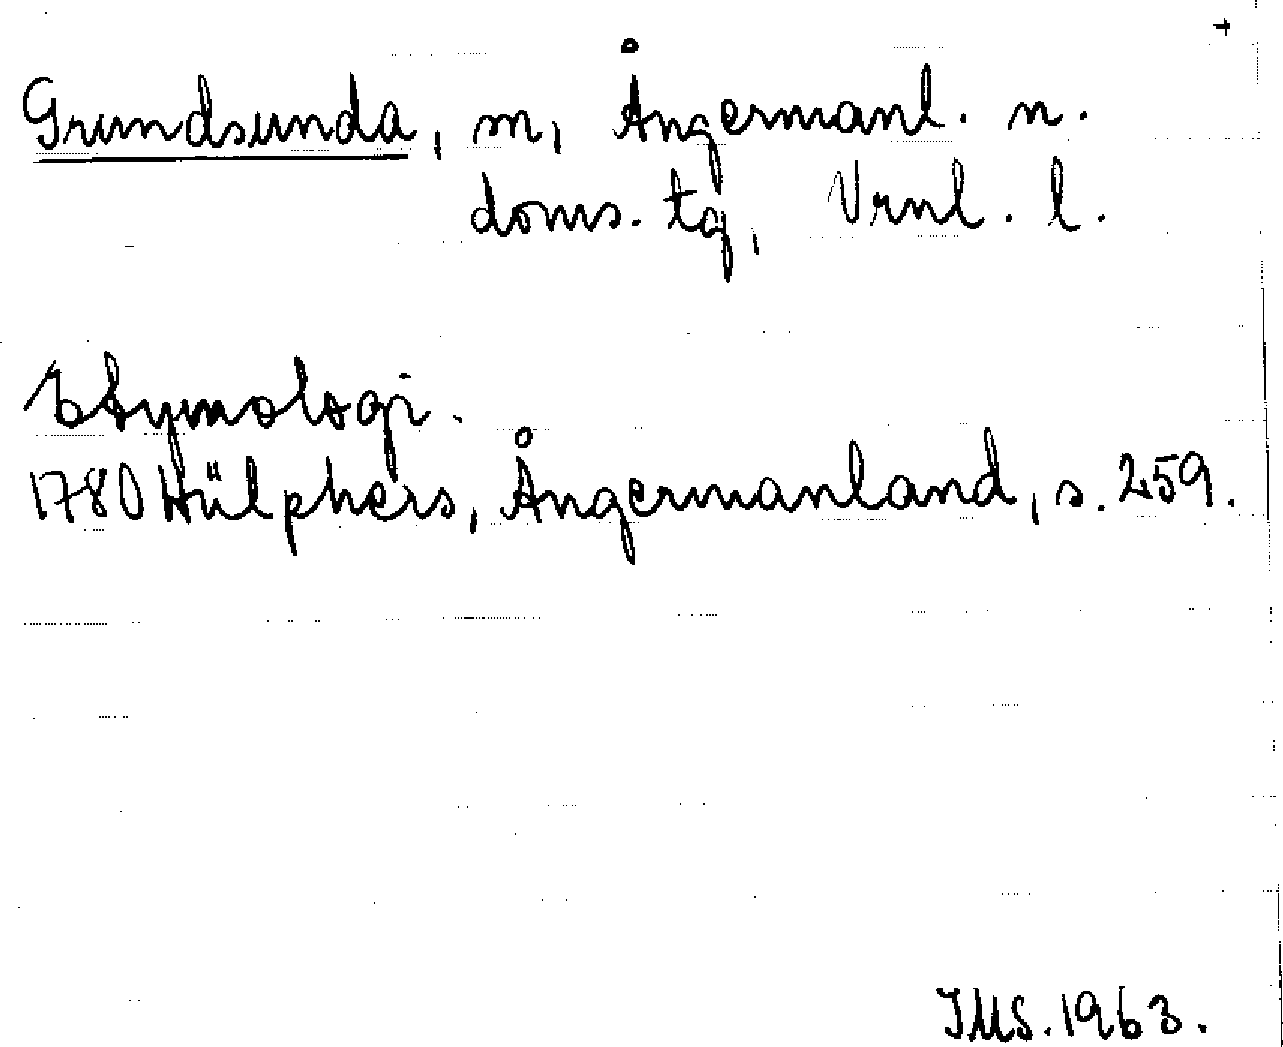 +
Grundsunda, m, Ångermanl. n.
doms. tg, Vrnl. l.
Etymologi.
1780 Hülphers, Ångermanland, s. 259.
JMS. 1963.